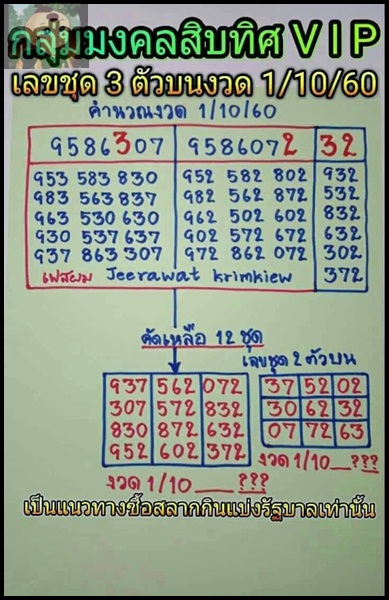 กลุ่มมงคลสิบทิศ V I P
เลขชุด 3 ตัวบนงวด 1/10/60
คำนวณงวด 1/10/60
9586307 9586072 32
953 583 830 952 582 802 932
983 563 837 982 562 872 532
963 530 630 962 502 602 832
930 537 637 902 572 672 632
937 863 307 972 862 072 302
เฟสผม Jeerawat Krimkiew 372
คัดเหลือ 12 ชุด
เลขชุด 2 ตัวบน
937 562 072
307 572 832
830 872 632
952 602 372
งวด 1/10__???
37 52 02
30 62 32
07 72 63
งวด 1/10__???
เป็นแนวทางซื้อสลากกินแบ่งรัฐบาลเท่านั้น